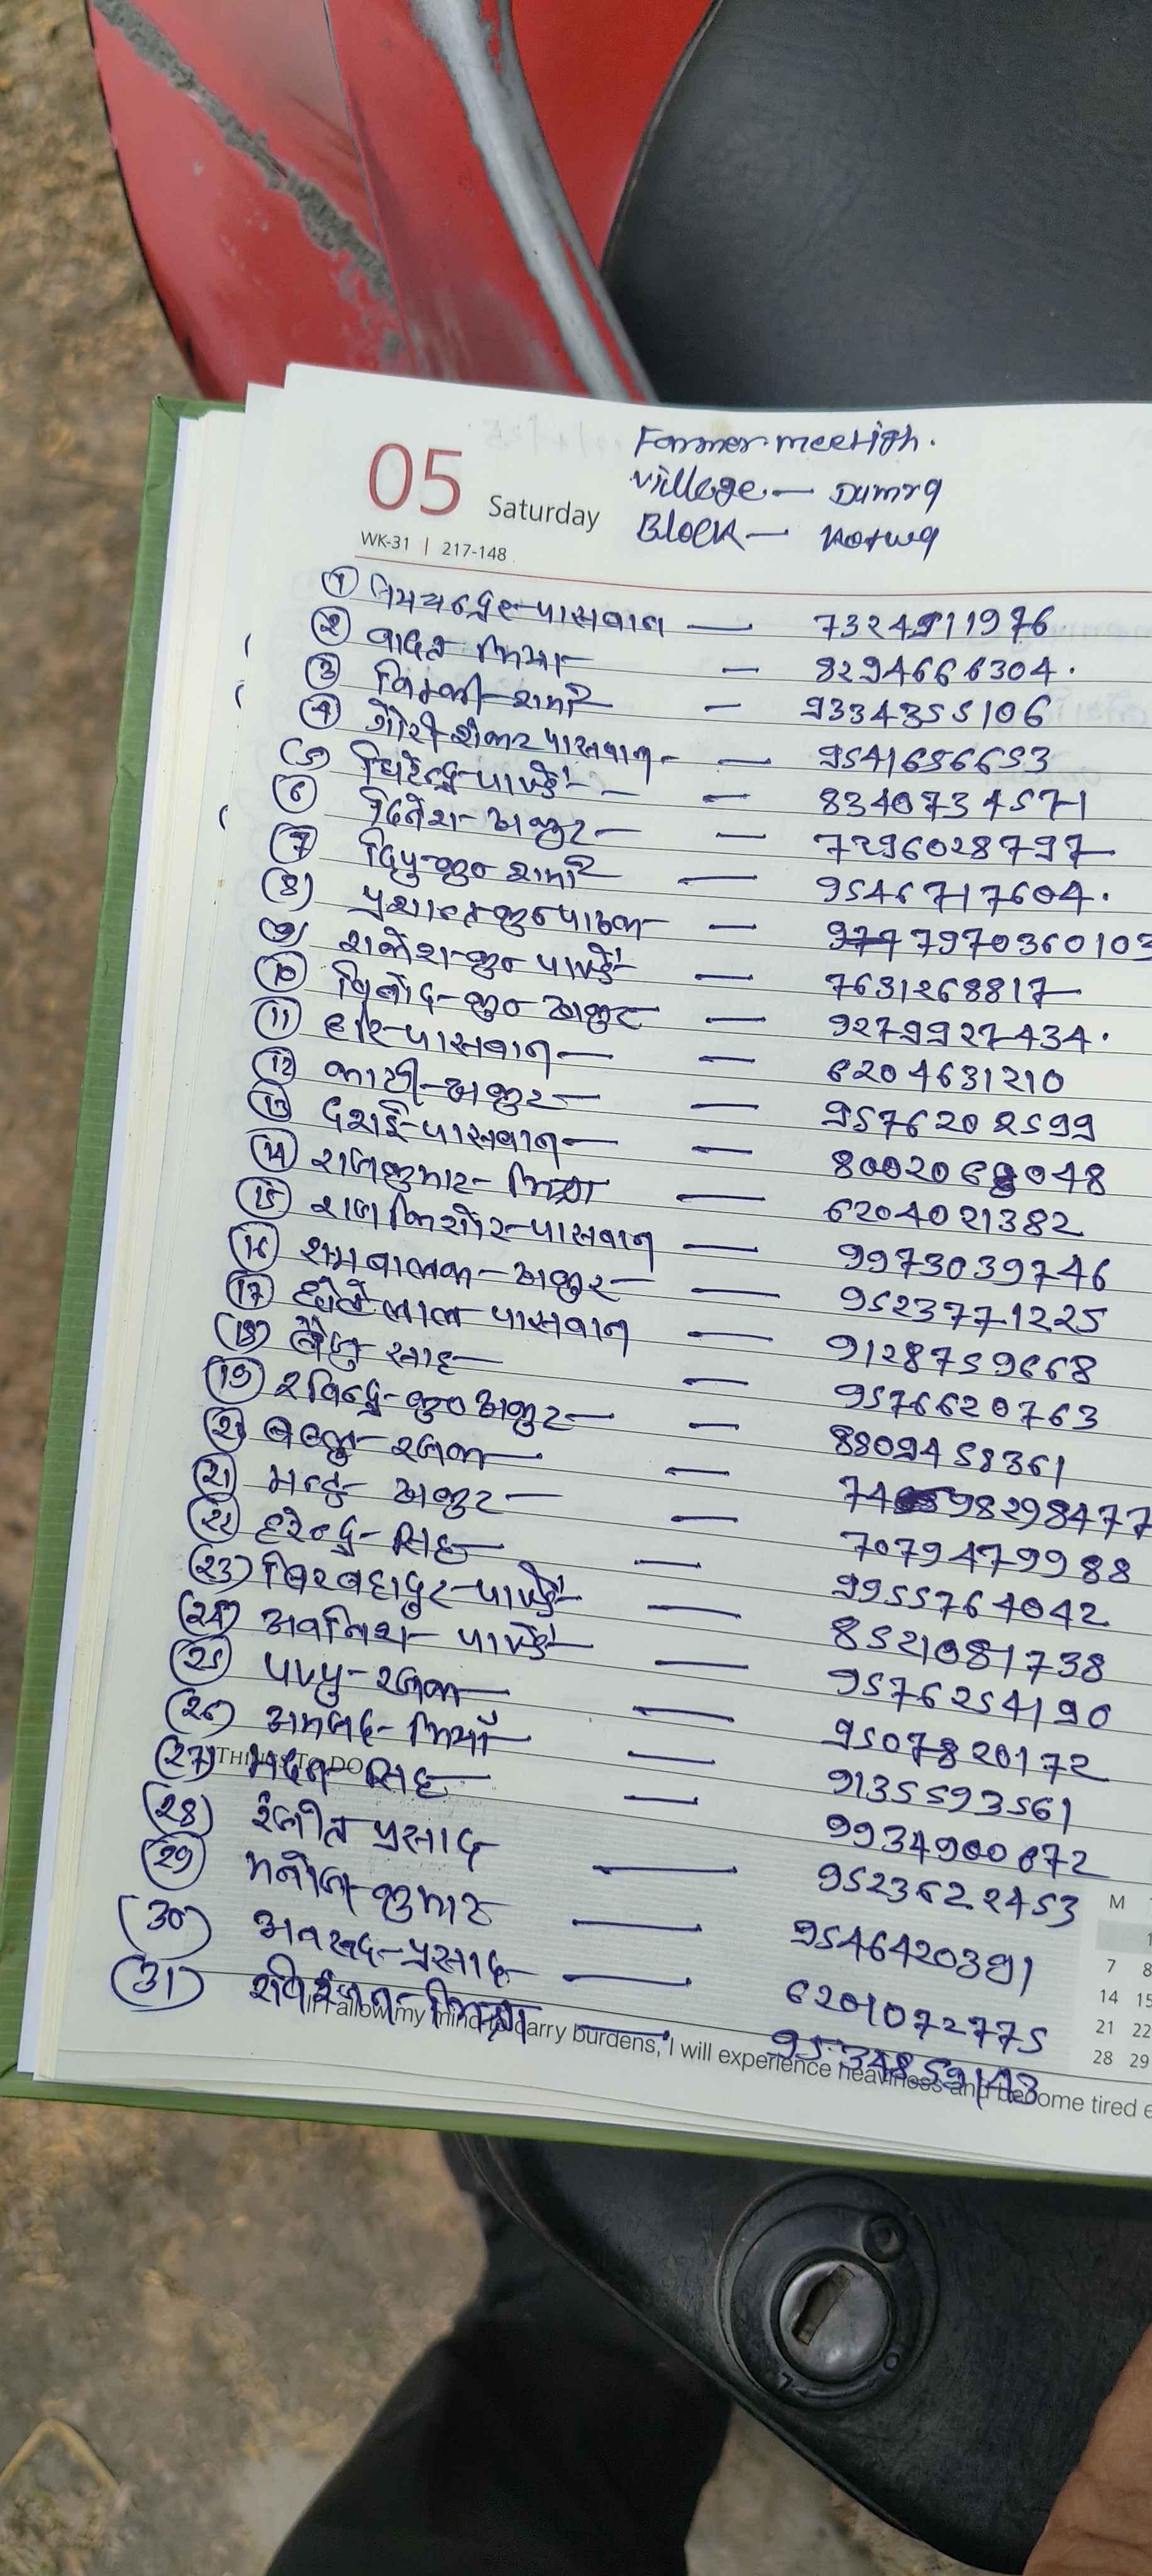 Farmer meetign.
05 Saturday village — Dumra
WK-31 | 217-148 Block — Kotwa
① पासवान — 7324911976
② मिया — 8294666304.
③ शर्मा — 9334355106
④ गौरी शंकर पासवान — 9541656653
(5) धिरेन्द्र पाण्डे — 8340734571
⑥ दिनेश ठाकुर — 7296028797
⑦ दिपु कु० शर्मा — 9546717604.
(8) प्रशान्त कु० पाठक — 7970360103
(9) राकेश कु० पाण्डे — 7631268817
⑩ विनोद कु० ठाकुर — 9279927434.
⑪ हरि पासवान — 6204631210
⑫ ठाकुर — 9576202599
⑬ दशई पासवान — 8002068048
⑭ राजकुमार मिश्रा — 6204021382
⑮ राज किशोर पासवान — 9973039746
⑯ राम बालक ठाकुर — 9523771225
⑰ छोटेलाल पासवान — 9128759668
(18) बैजु साह — 9576620763
(19) रविन्द्र कु० ठाकुर — 8809458361
(20) रजक — 7498298477
(21) ठाकुर — 7079479988
(22) हरेन्द्र सिंह — 9955764042
(23) बिरबहादुर पाण्डे — 8521081738
(24) अवनिश पाण्डे — 9576254190
(25) पप्पु रजक — 9507820172
(26) अमजद मियाँ — 9135593561
THINGS TO DO
(27) मदन सिंह — 9934900672
(28) रंजीत प्रसाद — 9523622453
(29) मनोज कुमार — 9546420391
(30) प्रसाद — 6201072775
(31) रवि रंजन मिश्रा — 9534859143
M
7 8
14 15
21 22
28 29
If I allow my mind to carry burdens, I will experience heaviness and become tired